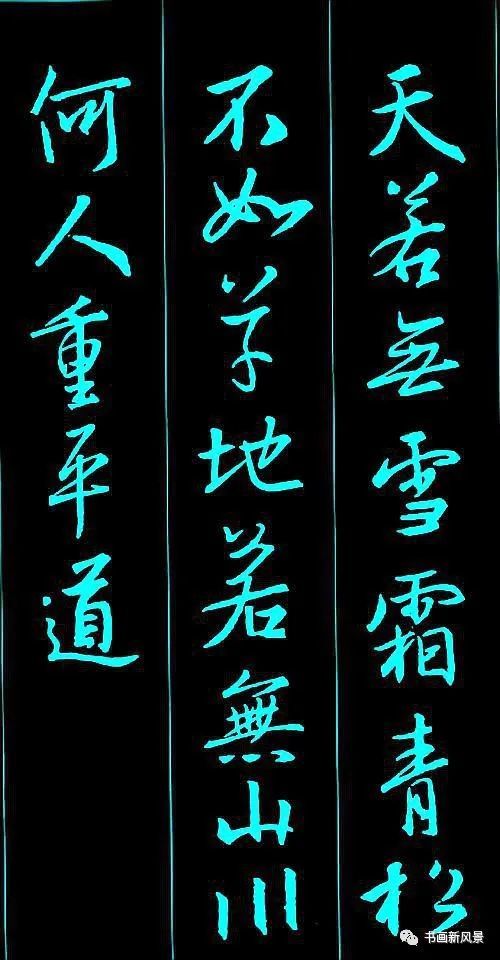 天若無雪霜青松
不如草地若無山川
何人重平道
书画新风景